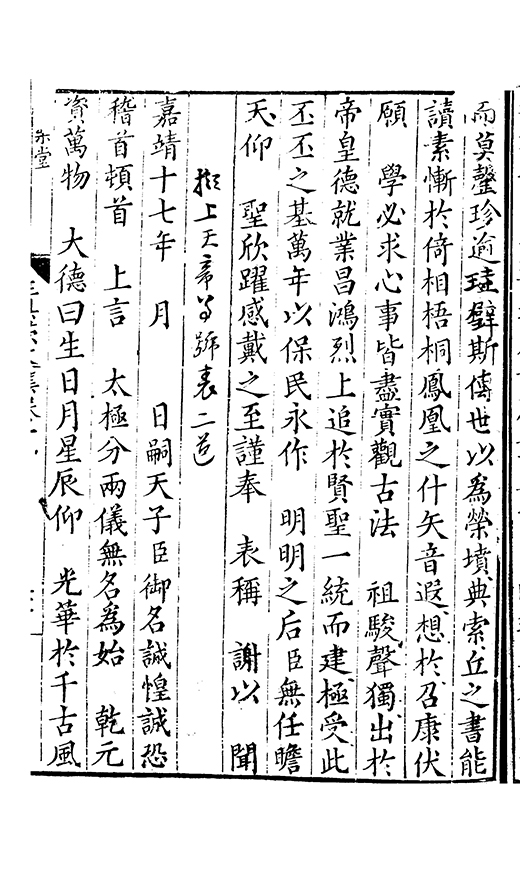 而莫罄珍逾琺璧斯傳世以為榮墳典索丘之書能
讀素慚於倚相梧桐鳳凰之什矢音遐想於召康伏
願 學必求心事皆盡實觀古法 祖駿聲獨出於
帝皇德就業昌鴻烈上追於賢聖一統而建極受此
丕丕之基萬年以保民永作 明明之后臣無任瞻
天仰 聖欣躍感戴之至謹奉 表稱 謝以 聞
擬上天帝尊號表二道
嘉靖十七年 月 日嗣天子臣御名誠惶誠恐
稽首頓首 上言 太極分兩儀無名為始 乾元
資萬物 大德曰生日月星辰仰 光華於千古風